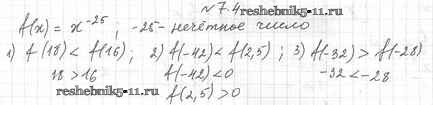 №7.4
reshebnik5-11.ru
f(x) = x^-25 ; -25 - нечётное число
1) f(18) < f(16); 2) f(-42) < f(2,5); 3) f(-32) > f(-28)
18 > 16 f(-42) < 0 -32 < -28
reshebnik5-11.ru
f(2,5) > 0